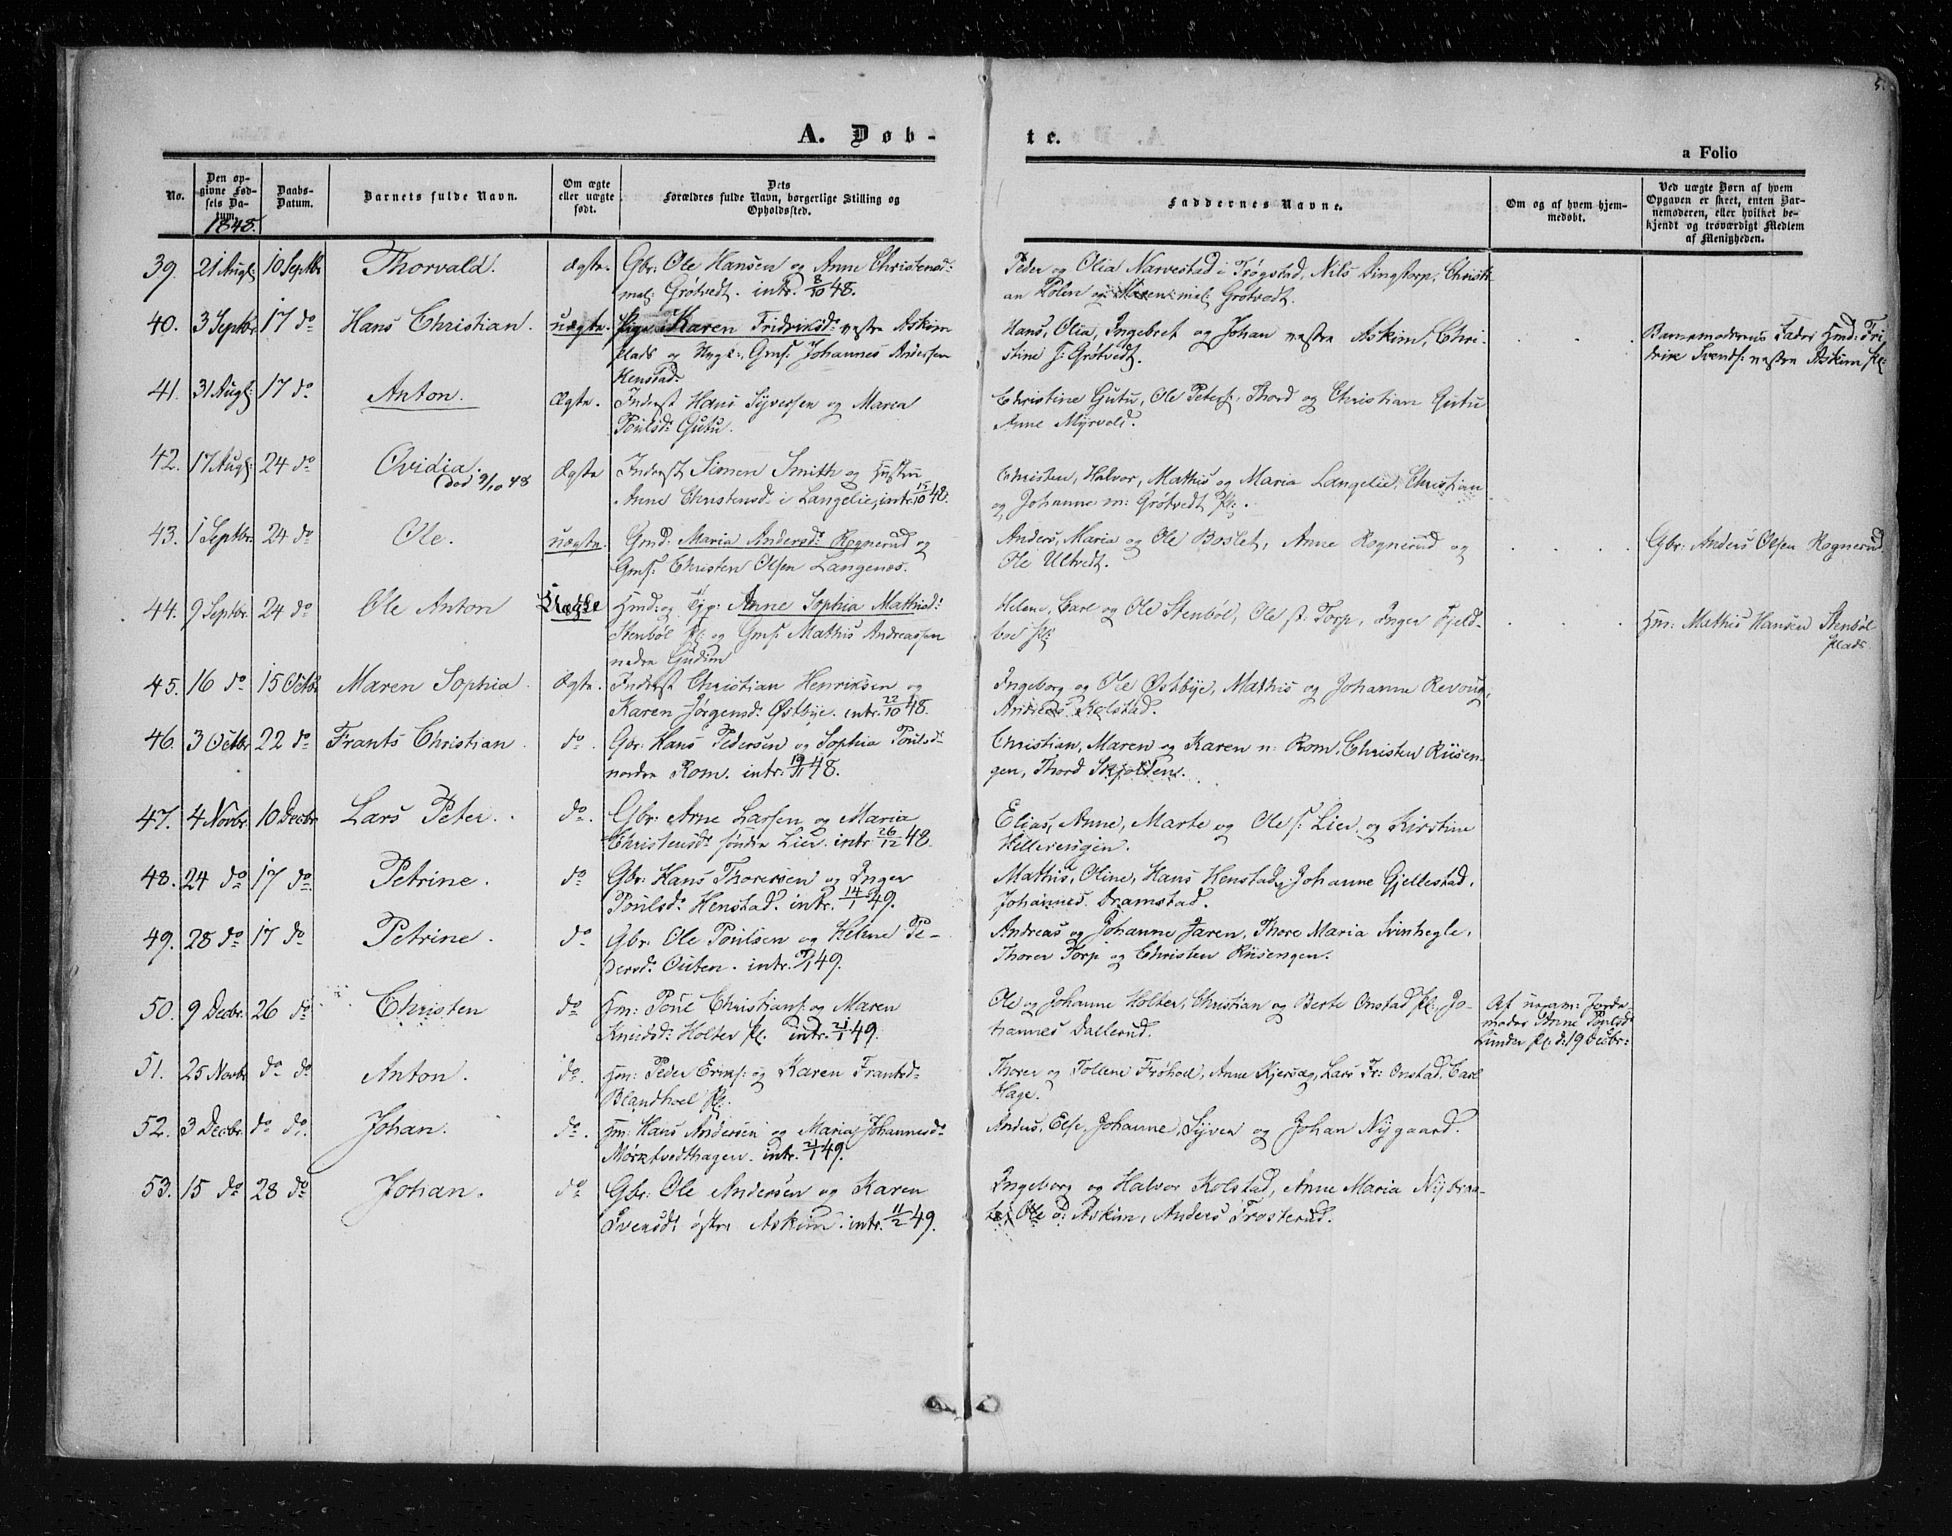 5.
A. Døb-
te.
a Folio
No.
Den op-
givne Fød-
sels Da-
tum.
Daabs-
Datum.
Barnets fulde Navn.
Om ægte
eller uægte
født.
Dets
Forældres fulde Navn, borgerlige Stilling og
Opholdssted.
Faddernes Navne.
Om og af hvem hjem-
medøbt.
Ved uægte Børn af hvem
Opgaven er skeet, enten Bar-
nemoderen, eller hvilket be-
kjendt og troværdigt Medlem
af Menigheden.
1848.
39. 21 Augs: 10 Septbr Thorvald. Ægte. Gbr: Ole Hansen og Anne Christensd: Peder og Olia Narvestad i Trøgstad, Nils Singstorp, Christi-
mel: Grøtvedt. intr. 8/10 48. an Holen og Maren mel: Grøtvedt.
40. 3 Septbr 17 do Hans Christian. uægte. Pige Karen Fridriksd: vestre Askim Hans, Olia, Ingebret og Johan vestre Askim, Chri- Barnemoderens Fader Hmd: Fri-
Plads og Ungk:, Gmf: Johannes Andersen stine s: Grøtvedt. drik Svends: vestre Askim Pl:
Henstad.
41. 31 Augs: 17 do Anton. Ægte. Inderst Hans Syversen og Maren Christine Gutu, Ole Peters: Thord og Christian Gutu
Poulsd: Gutu. Anne Myrvold.
42. 17 Augs: 24 do Ovidia. Ægte Inderst Simen Smith og Hustru Christen, Halvor, Mathis og Maria Langelie, Christian
død 9/10 48 Anne Christensd: i Langelie, intr. 15/10 48. og Johanne m: Grøtvedt Pl:.
43. 1 Septbr: 24 do Ole. uægte. Gmd: Maria Andersd: Rognerud og Anders, Maria og Ole Boslet, Anne Rognerud og Gbr: Anders Olsen Rognerud.
Gmf: Christen Olsen Langenæs. Ole Ultvedt.
44. 9 Septbr: 24 do Ole Anton Uægte Hmd: og Tjp: Anne Sophia Mathisd: Helene, Carl og Ole Stenbøl, Ole st: Torp, Inger Fjeld- Hm: Mathis Hansen Stenbøl
Stenbøl Pl: og Gmf: Mathis Andreassen boe Pl: Plads.
nedre Gudim
45. 16 do 15 Octbr Maren Sophia. Ægte. Inderst Christian Henriksen og Ingeborg og Ole Østbye, Mathis og Johanne Revoug,
Karen Jørgensd: Østbye. intr. 22/10 48. Andreas Kolstad.
46. 3 Octbr 22 do Frants Christian. do. Gbr: Hans Pedersen og Sophia Poulsd: Christian, Maren og Karen n: Rom, Christen Riisen-
nordre Rom. intr. 19/11 48. gen, Thord Skjolden.
47. 4 Novbr. 10 Decbr. Lars Peter. do. Gbr: Arne Larsen og Maria Elias, Anne, Marte og Ole s: Lier og Kirstine
Christensd: søndre Lier. intr. 26/12 48. Hellerengen.
48. 24 do 17 do Petrine. do Gbr: Hans Thoresen og Inger Mathis, Oline, Hans Henstad, Johanne Gjellestad,
Poulsd: Henstad. intr. 14/1 49. Johannes Dramstad.
49. 28 do 17 do Petrine. do Gbr: Ole Poulsen og Helene Pe- Andreas og Johanne Jaren, Thore Maria Svinhegle,
dersd: Outen. intr. 49. Thorer Torp og Christen Riisengen.
50. 9 Decbr. 26 do Christen do Hm: Poul Christians: og Maren Ole og Johanne Holter, Christian og Berte Onstad Pl:, Jo- Af exam: Jorde
Knudsd: Holter Pl. intr. 21/1 49. hannes Dallerud. moder Anne Poulsd:
Lunder Pl: d: 19 Decbr:
51. 25 Novbr do do Anton. do. Hm: Peder Eriks: og Karen Frantsd: Thorer og Tollene Frøhoel, Anne Kjersæg, Lars Fr: Onstad, Carl
Blandhoel Pl:. Hage.
52. 3 Decbr. do do. Johan. do. Hm: Hans Andersen og Maria Johannesd: Anders, Else, Johanne, Syver og Johan Nygaard.
Mørktvedthagen. intr. 21/1 49.
53. 15 do 28 do Johan. do Gbr: Ole Andersen og Karen Ingeborg og Halvor Kolstad, Anne Maria
Svensd: østre Askim. intr. 11/2 49. Ole ø: Askim, Anders Trosterud.